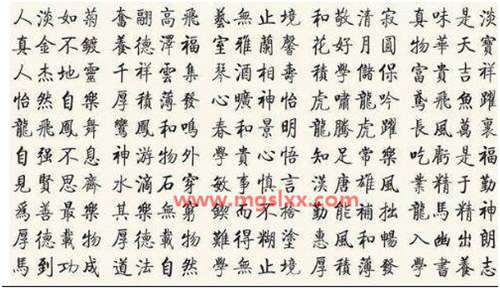 人淡如菊 奮翮高飛 藝無止境 和敬清寂 真味是淡
真金不鍍 養德澤福 室雅蘭馨 花好月圓 物華天寶
人杰地靈 千祥雲集 琴酒相壽 積學儲 富貴吉祥
怡然自樂 厚積薄發 曠神怡 虎嘯龍吟 鳶飛魚躍
龍飛鳳舞 鸞鳳和鳴 春和景明 龍騰虎躍 長風萬里
自强不息 神游物外 學貴心悟 知足常樂 吃虧是福
見賢思齊 水滴石穿 敏事慎言 漢唐雄風 業精于勤
爲善最樂 其樂無窮 鍥而不捨 勤能補拙 龍馬精神
厚德載物 厚德載物 難得糊塗 惠風和暢 入幽出朗
馬到功成 道法自然 學無止境 厚積薄發 學書養志
www.mgslxx.com